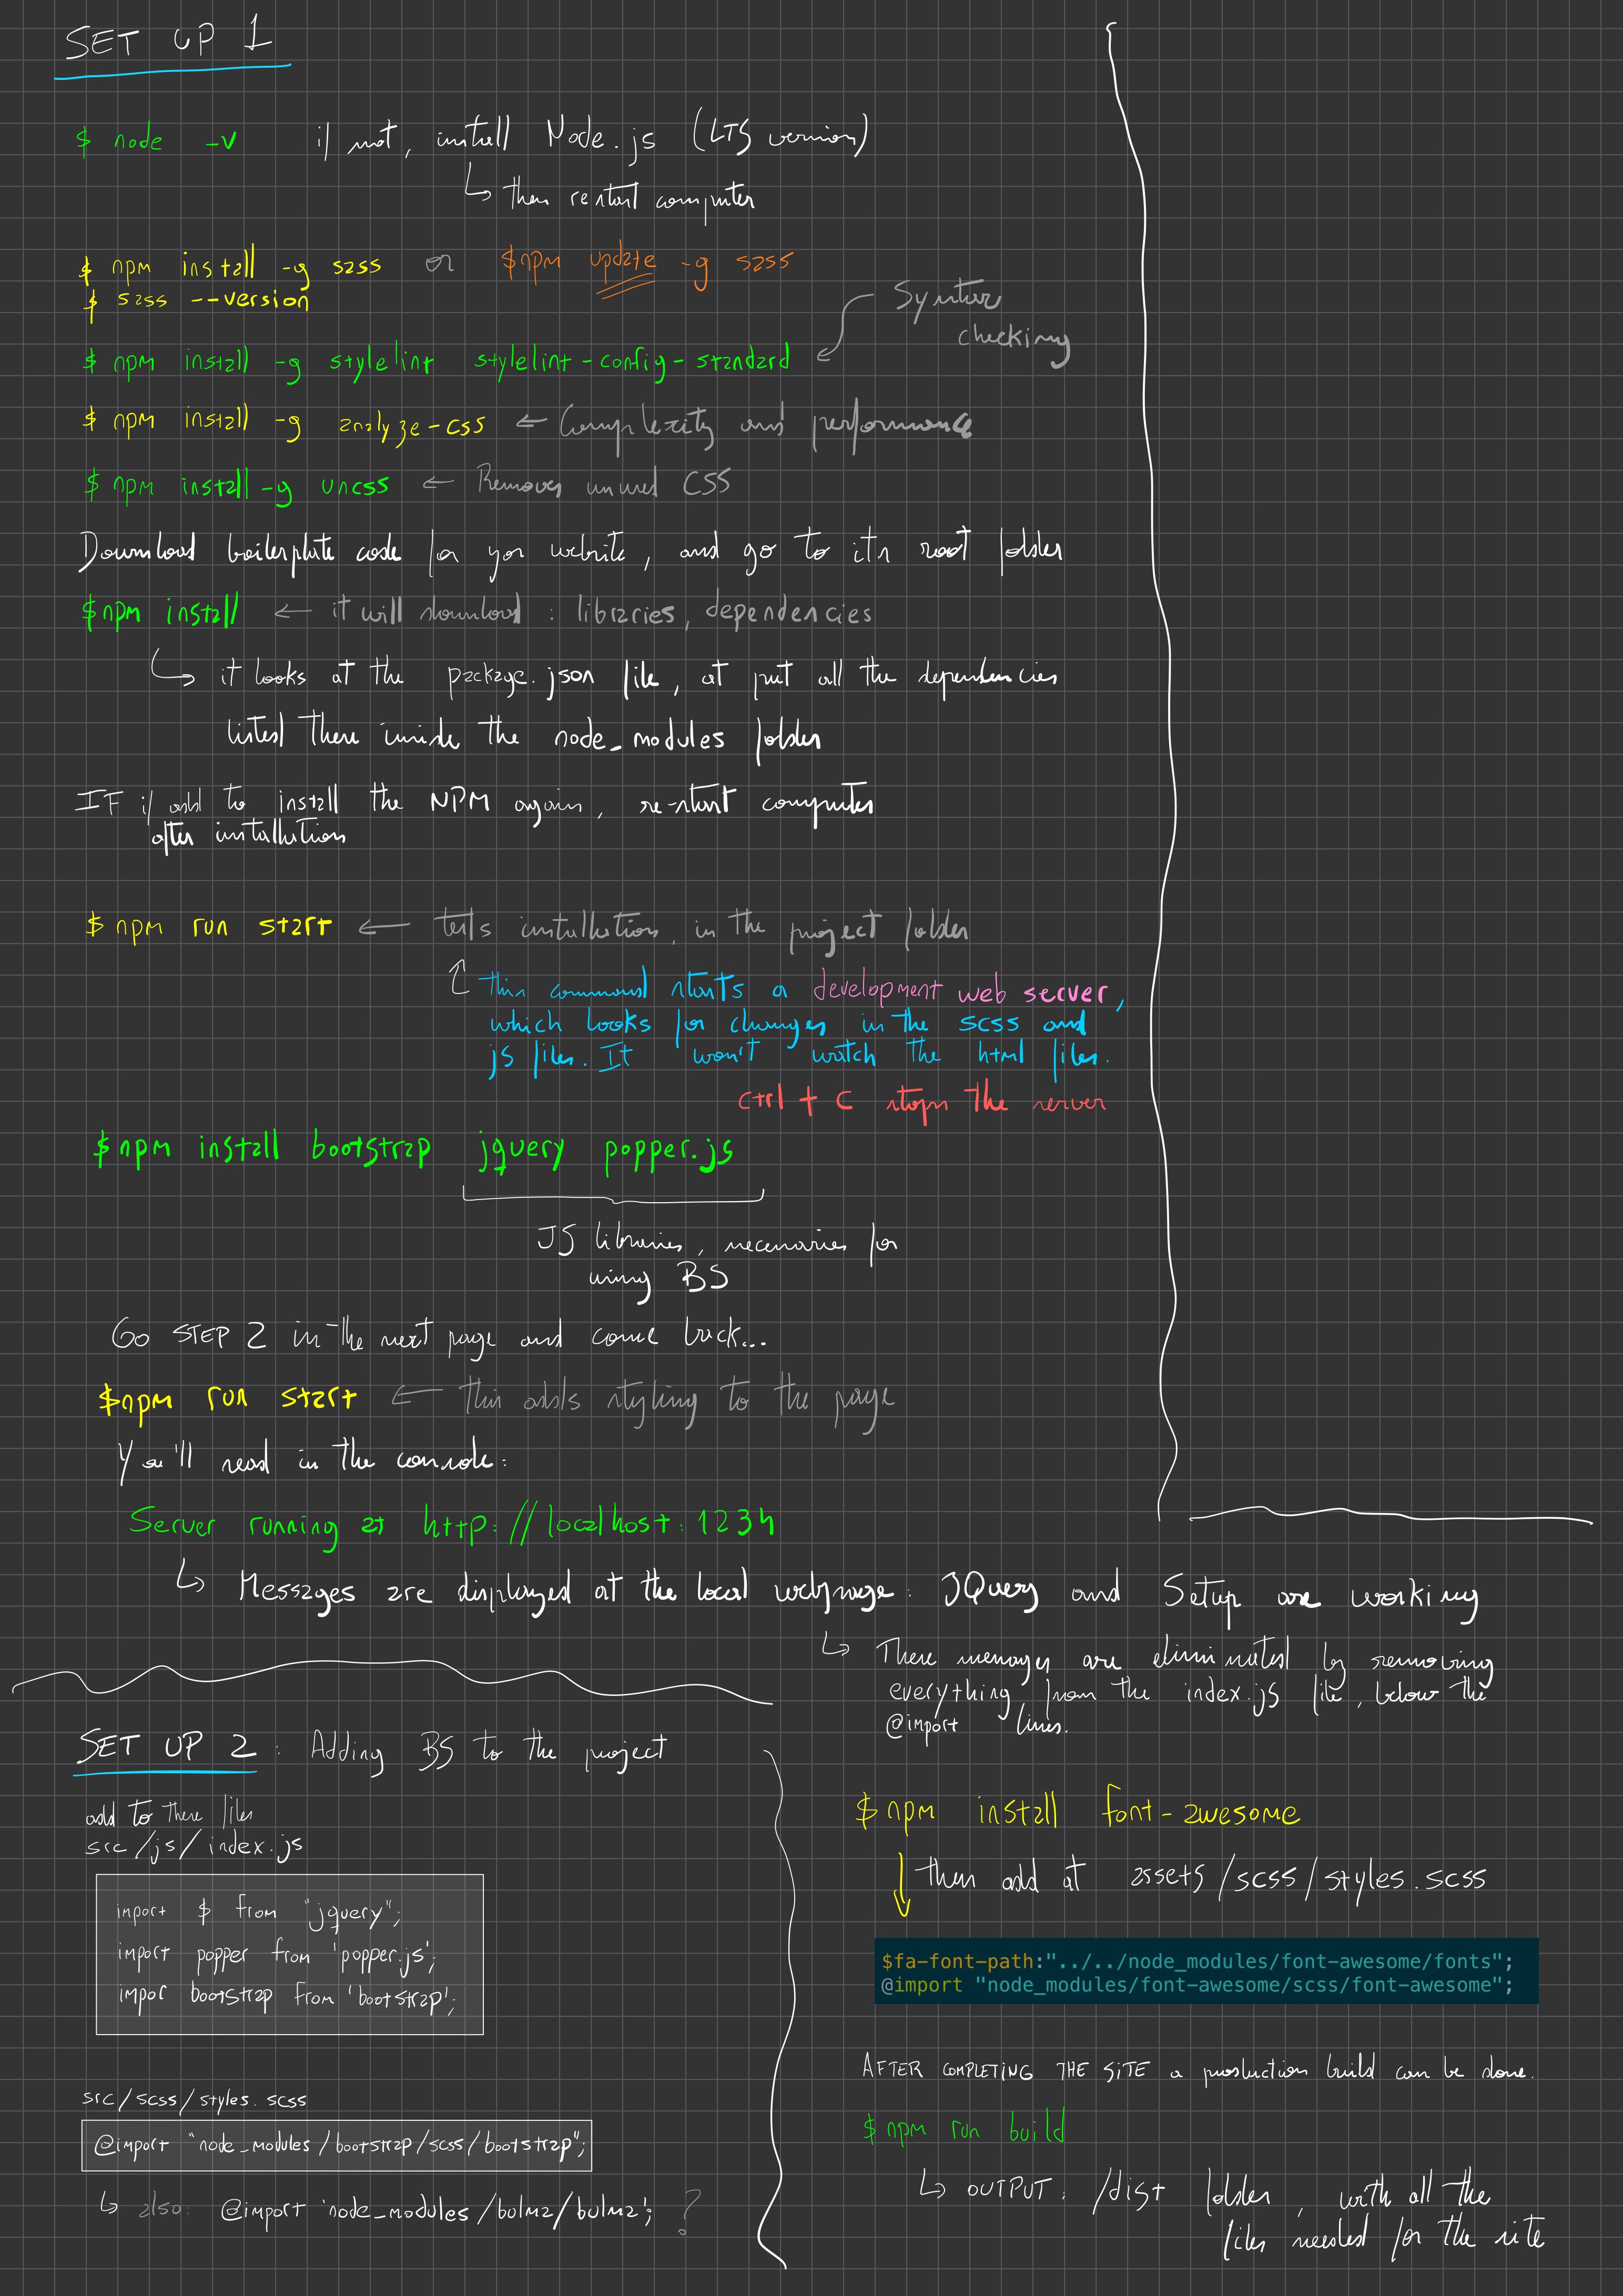 SET UP 1
$ node -v if not, install Node.js (LTS version)
↳ then restart computer
$ npm install -g sass or $npm update -g sass
$ sass --version
Syntax
checking
$ npm install -g stylelint stylelint-config-standard
$ npm install -g analyze-css ← Complexity and performance
$ npm install -g uncss ← Removes unused CSS
Download boilerplate code for yor website, and go to its root folder
$npm install ← it will download : libraries, dependencies
↳ it looks at the package.json file, at put all the dependencies
listed there inside the node_modules folder
IF if add to install the NPM again, re-start computer
after installation
$ npm run start ← tests installation, in the project folder
this command starts a development web server,
which looks for changes in the scss and
js files. It won't watch the html files.
ctrl + c stops the server
$npm install bootstrap jquery popper.js
JS libraries, necessaries for
using BS
Go STEP 2 in the next page and come back...
$npm run start ← this adds styling to the page
You'll read in the console:
Server running at http://localhost:1234
↳ Messages are displayed at the local webpage: JQuery and Setup are working
↳ These messages are eliminated by removing
everything, from the index.js file, below the
@import lines.
SET UP 2 : Adding BS to the project
add to these files
src/js/index.js
import $ from "jquery";
import popper from 'popper.js';
impor bootstrap from 'bootstrap';
src/scss/styles.scss
@import "node_modules/bootstrap/scss/bootstrap";
↳ also: @import 'node_modules/bulma/bulma'; ?
$ npm install font-awesome
then add at assets/scss/styles.scss
$fa-font-path:"../../node_modules/font-awesome/fonts";
@import "node_modules/font-awesome/scss/font-awesome";
AFTER COMPLETING THE SITE a production build can be done.
$ npm run build
↳ OUTPUT: /dist folder, with all the
files needed for the site